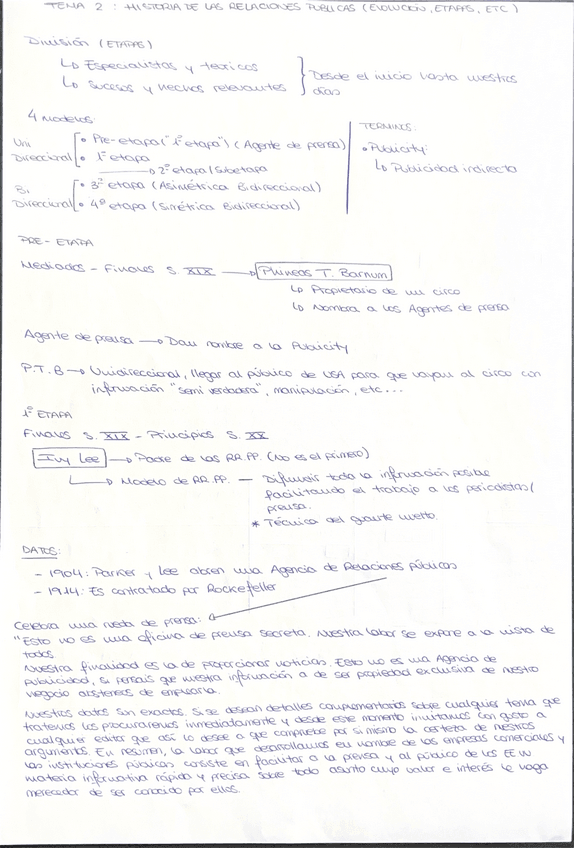 TEMA 2 : HISTORIA DE LAS RELACIONES PÚBLICAS (EVOLUCIÓN, ETAPAS, ETC)
División (ETAPAS)
↳ Especialistas y teóricos
↳ Sucesos y hechos relevantes
Desde el inicio hasta nuestros
días
4 Modelos
Uni
Direccional
• Pre-etapa ("1ª etapa") (Agente de prensa)
• 1ª etapa
→ 2ª etapa/Subetapa
Bi
Direccional
• 3ª etapa (Asimétrica Bidireccional)
• 4ª etapa (Simétrica Bidireccional)
TERMINOS:
• Publicity:
↳ Publicidad indirecta
PRE-ETAPA
Mediados - Finales S. XIX → Phineas T. Barnum
↳ Propietario de un circo
↳ Nombra a los Agentes de prensa
Agente de prensa → Dan nombre a la Publicity
P.T.B → Unidireccional, llegar al público de USA para que vayan al circo con
información "semi verdadera", manipulación, etc...
1ª ETAPA
Finales S. XIX - Principios S. XX
Ivy Lee → Padre de las RR.PP. (No es el primero)
→ Modelo de RR.PP. — Difundir toda la información posible
facilitando el trabajo a los periodistas/
prensa.
* Técnica del guante
DATOS:
- 1904: Parker y Lee abren una Agencia de Relaciones públicas
- 1914: Es contratado por Rockefeller
Celebra una rueda de prensa:
"Esto no es una oficina de prensa secreta. Nuestra labor se expone a la vista de
todos.
Nuestra finalidad es la de proporcionar noticias. Esto no es una Agencia de
publicidad, si pensáis que nuestra información a de ser propiedad exclusiva de nuestro
negocio absteneos de emplearla.
Nuestros datos son exactos. Si se desean detalles complementarios sobre cualquier tema que
tratemos los procuraremos inmediatamente y desde este momento invitamos con gusto a
cualquier editor que así lo desee a que compruebe por si mismo la certeza de nuestros
argumentos. En resumen, la labor que desarrollamos en nombre de las empresas comerciales y
las instituciones públicas consiste en facilitar a la prensa y al público de los EEUU
materia informativa rápida y precisa sobre todo asunto cuyo valor e interés le haga
merecedor de ser conocido por ellos.